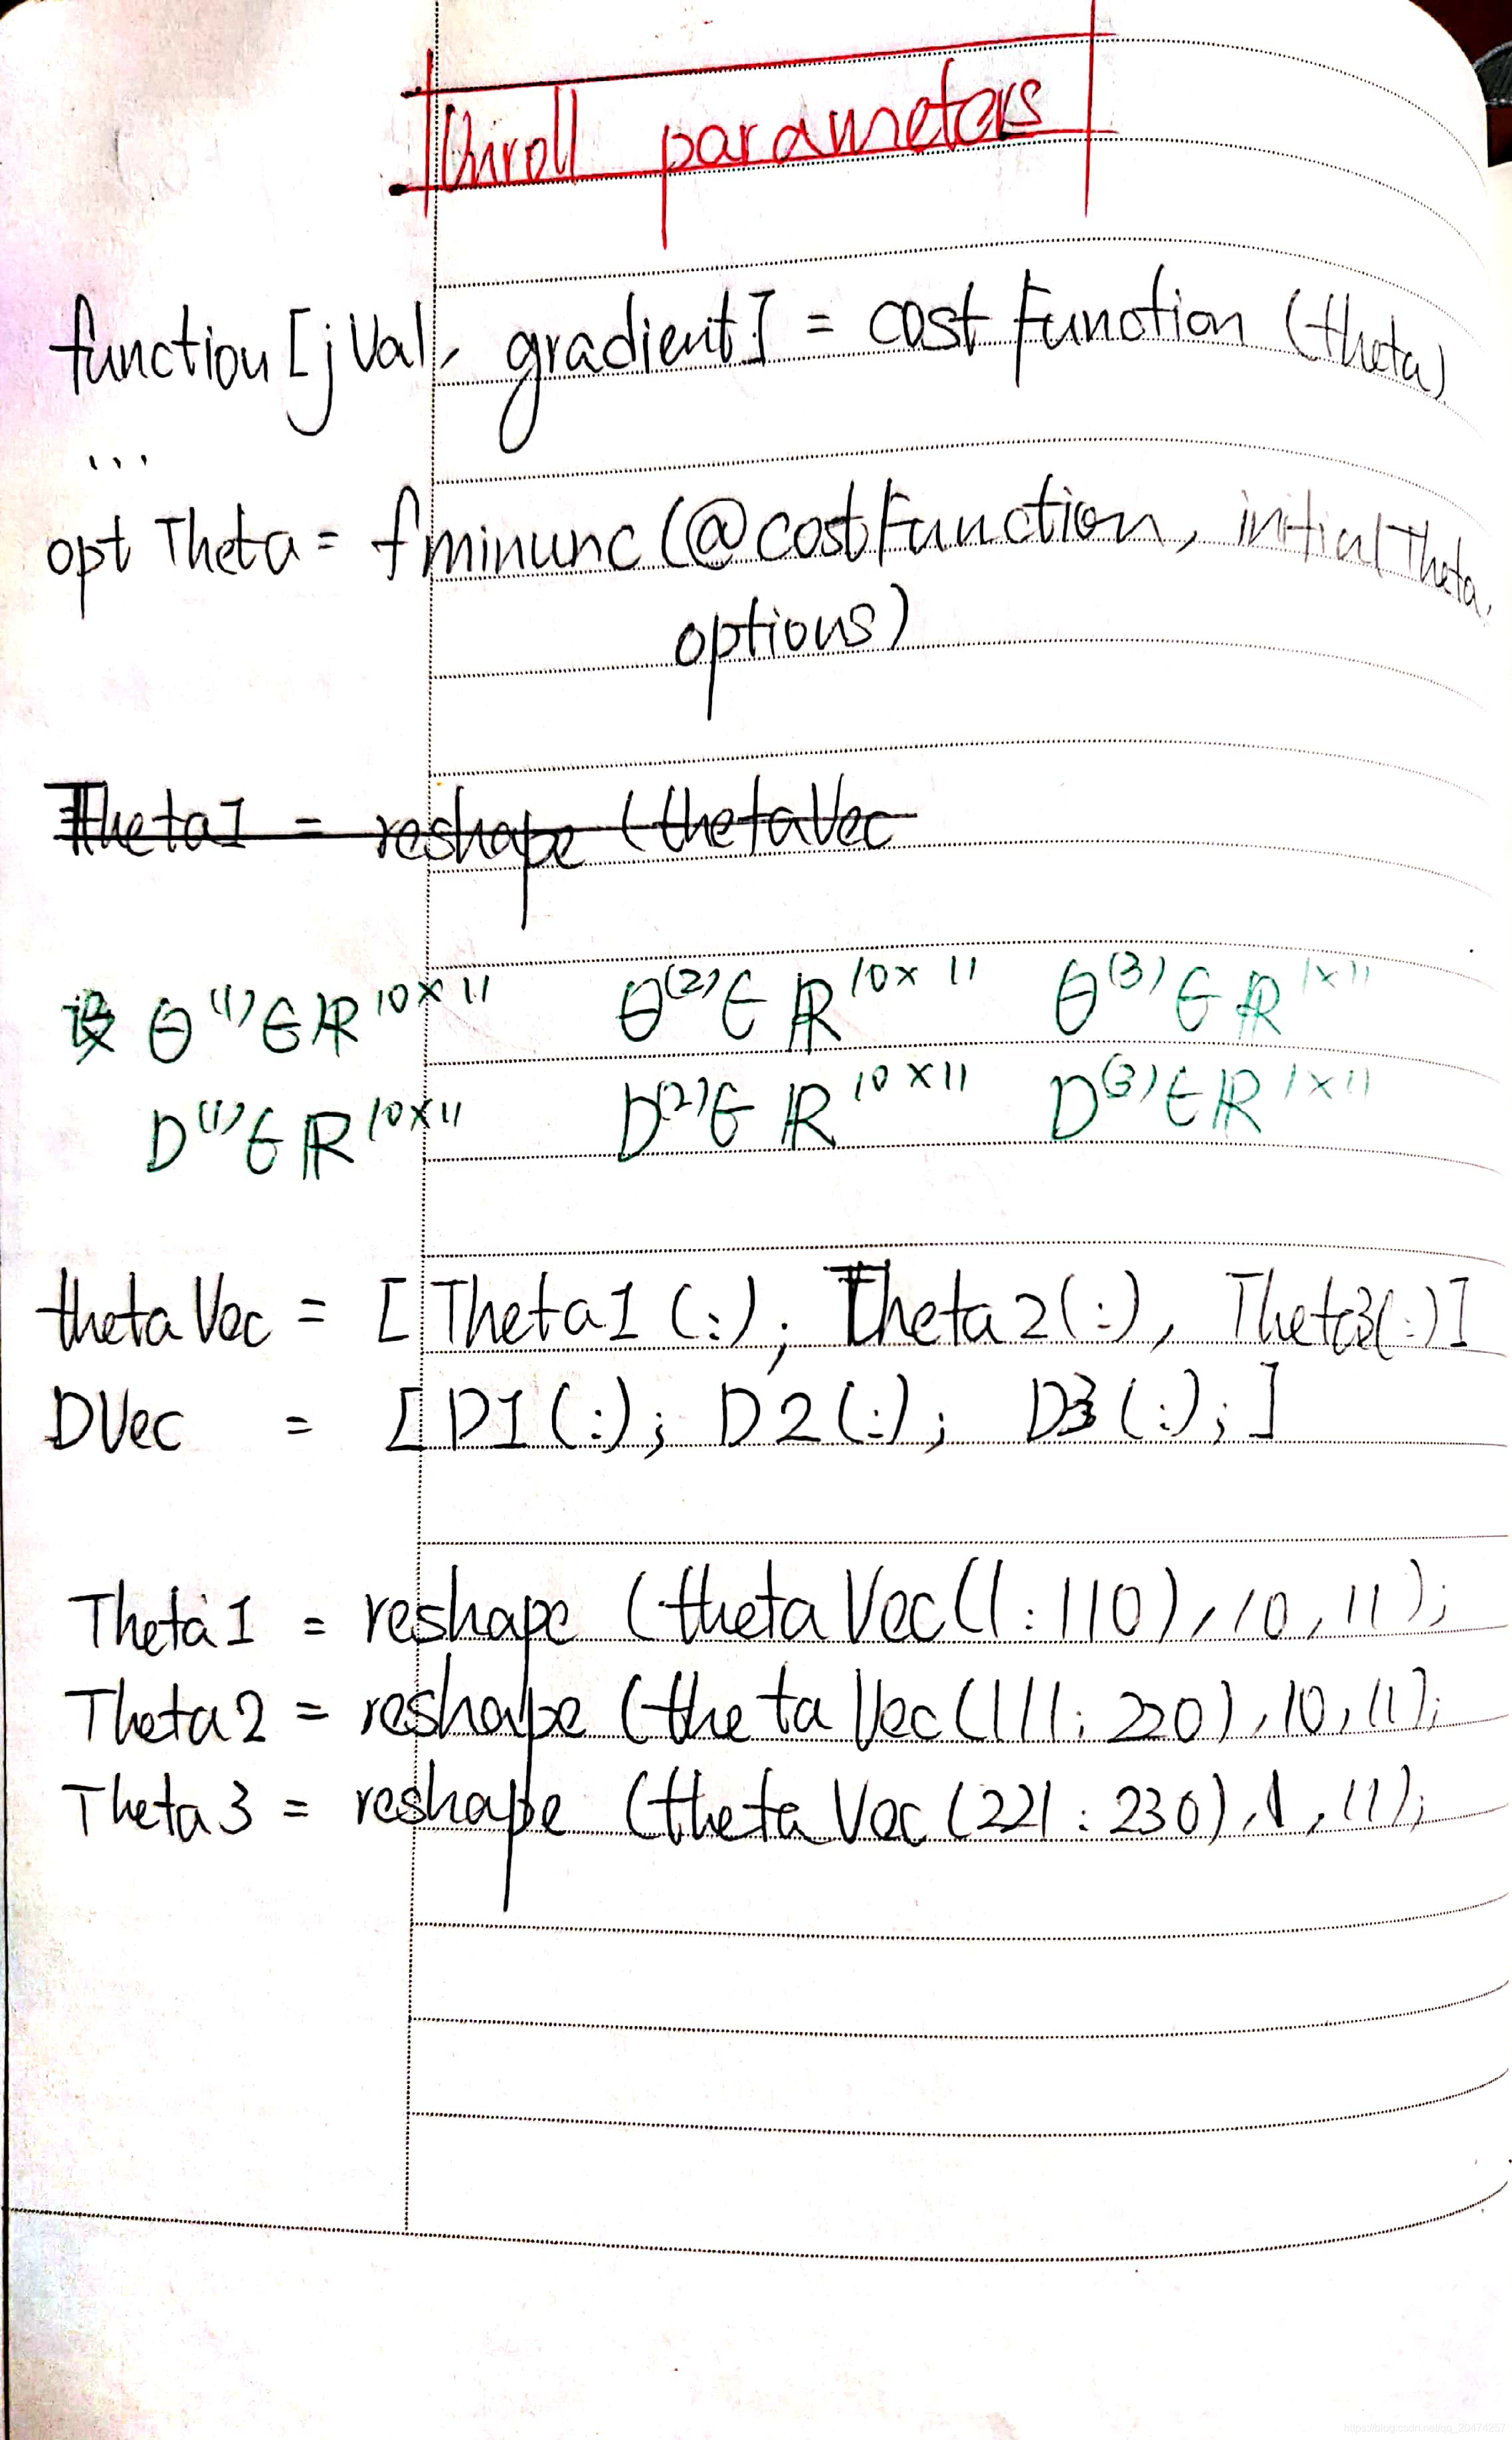 Unroll parameters
function [jVal, gradient] = costFunction (theta)
...
optTheta = fminunc (@costFunction, initialTheta,
options)
Theta1 = reshape (thetaVec
设 Θ^(1) ∈ ℝ^10×11 Θ^(2) ∈ ℝ^10×11 Θ^(3) ∈ ℝ^1×11
D^(1) ∈ ℝ^10×11 D^(2) ∈ ℝ^10×11 D^(3) ∈ ℝ^1×11
thetaVec = [Theta1(:); Theta2(:), Theta3(:)]
DVec = [D1(:); D2(:); D3(:);]
Theta1 = reshape (thetaVec(1:110), 10, 11);
Theta2 = reshape (thetaVec(111:220), 10, 11);
Theta3 = reshape (thetaVec(221:230), 1, 11);
https://blog.csdn.net/qq_20474257